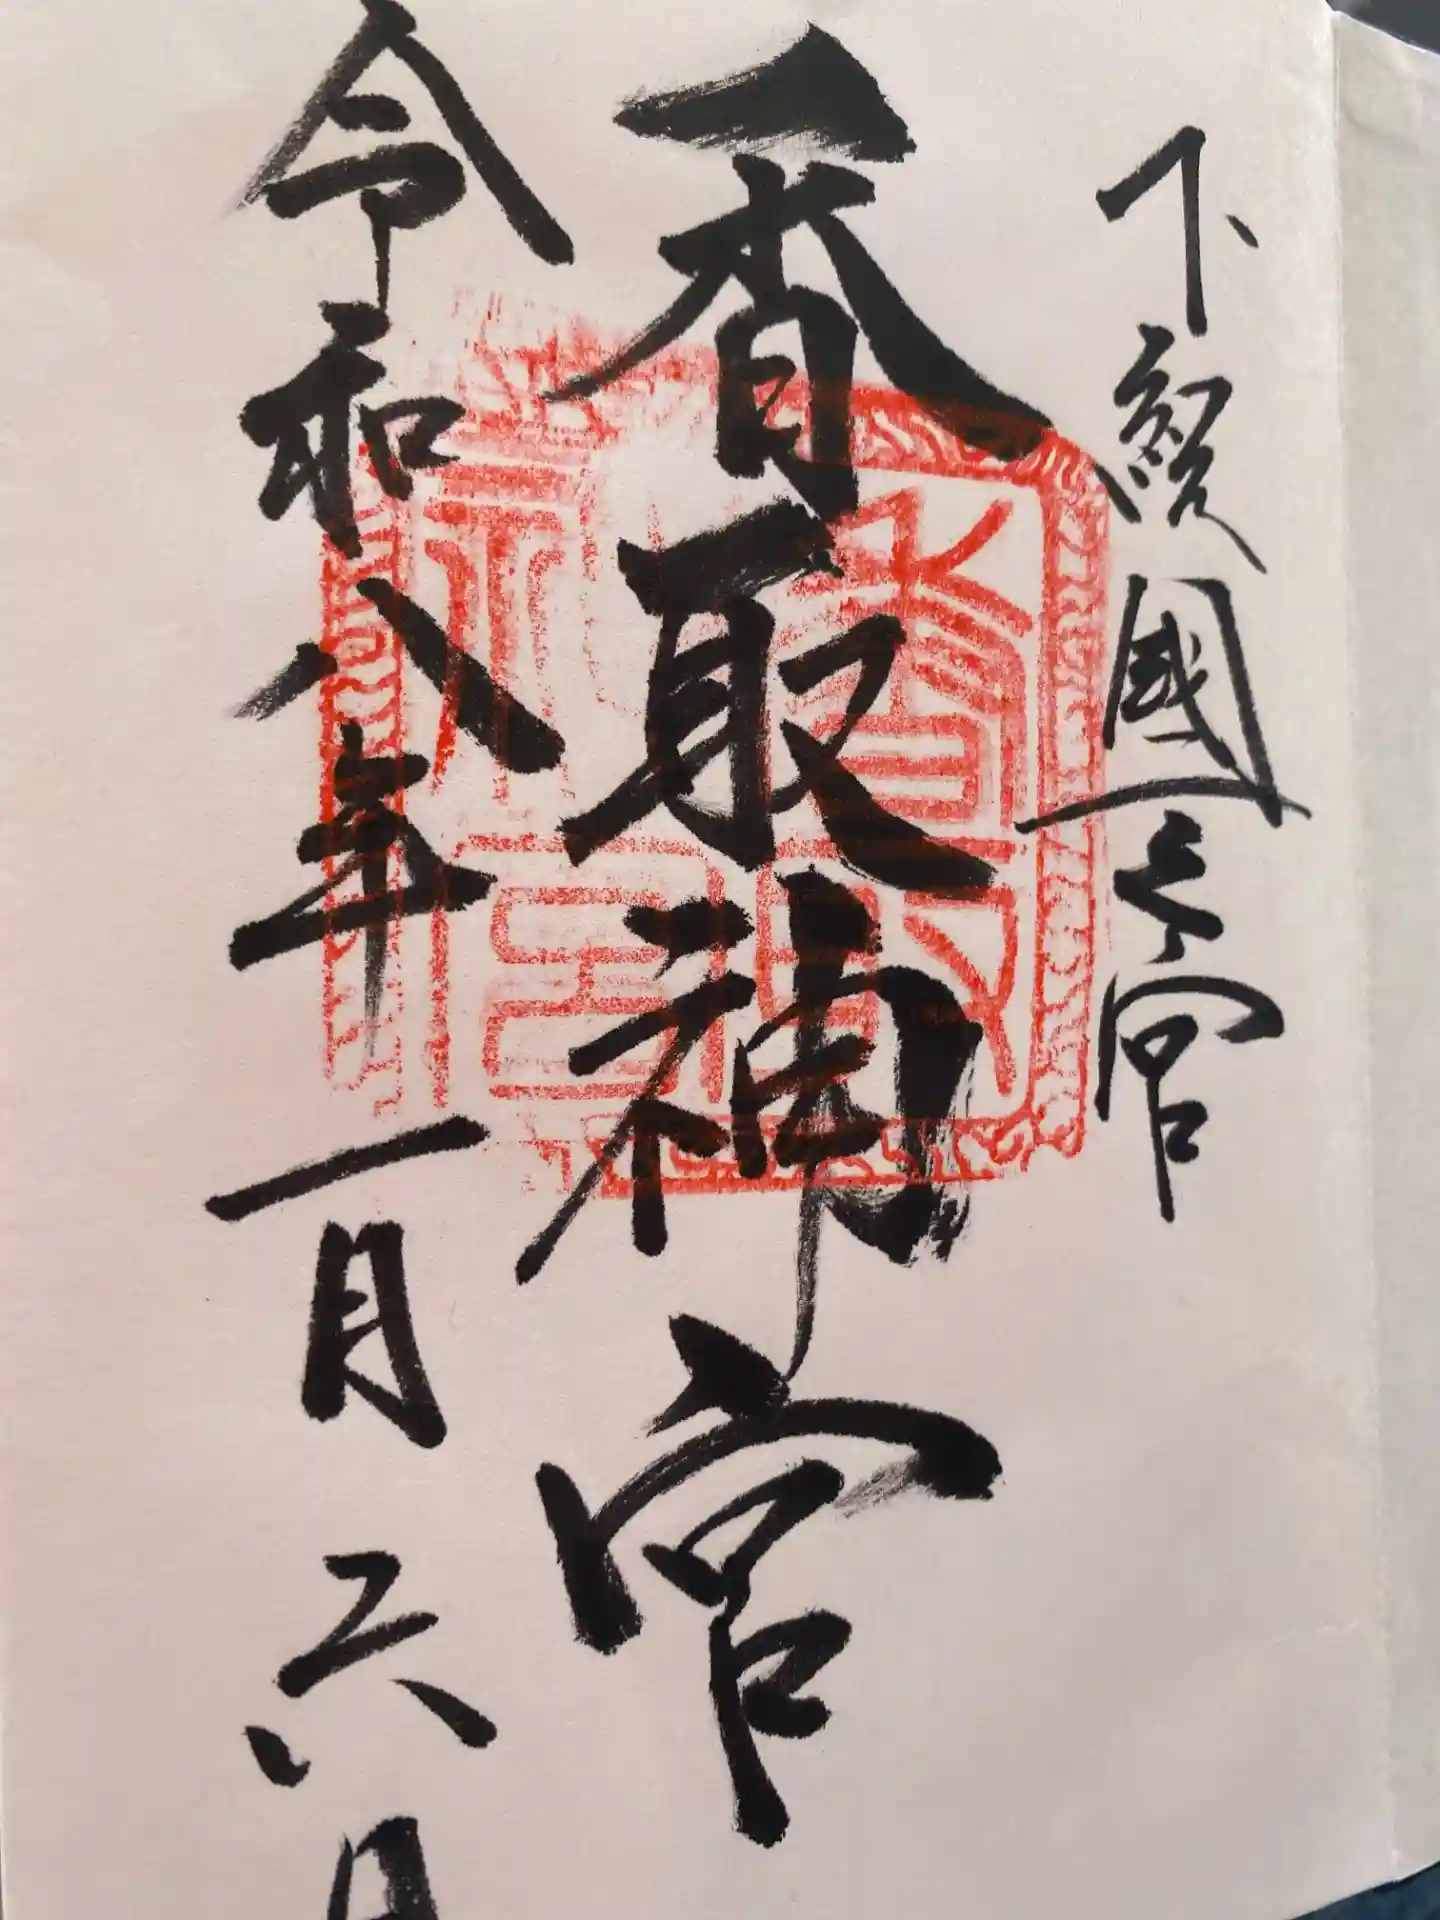 下総國一之宮
香取神宮
令和八年一月六日
香取
神宮